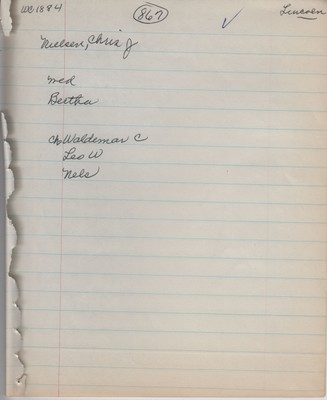 WC1884
867
Lincoln
Nielsen, Chris J
med
Bertha
Ch Waldemar C
Leo W
Nels